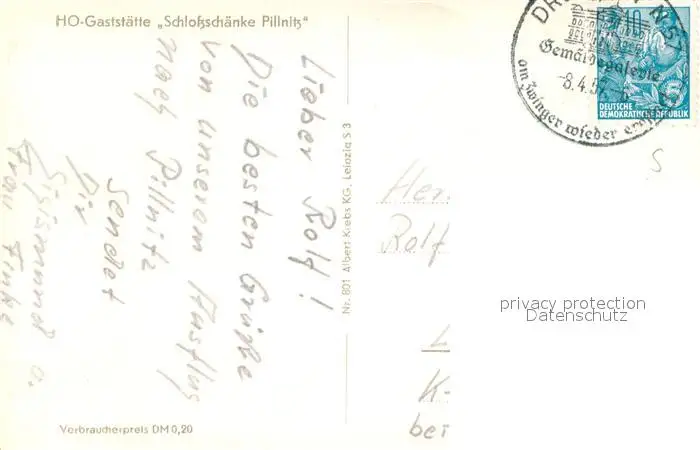 HO-Gaststätte „Schloßschänke Pillnitz"
Lieber Rolf!
Die besten Grüße
von unserem Ausflug
nach Pillnitz
sendet
Dir
Sigismund u.
Frau
Verbraucherpreis DM 0,20
Nr. 801 Albert Krebs KG, Leipzig S 3
Gemäldegalerie
8.4.57
am Zwinger wieder
10
5
DEUTSCHE
DEMOKRATISCHE REPUBLIK
S
Rolf
K-
bei
privacy protection
Datenschutz